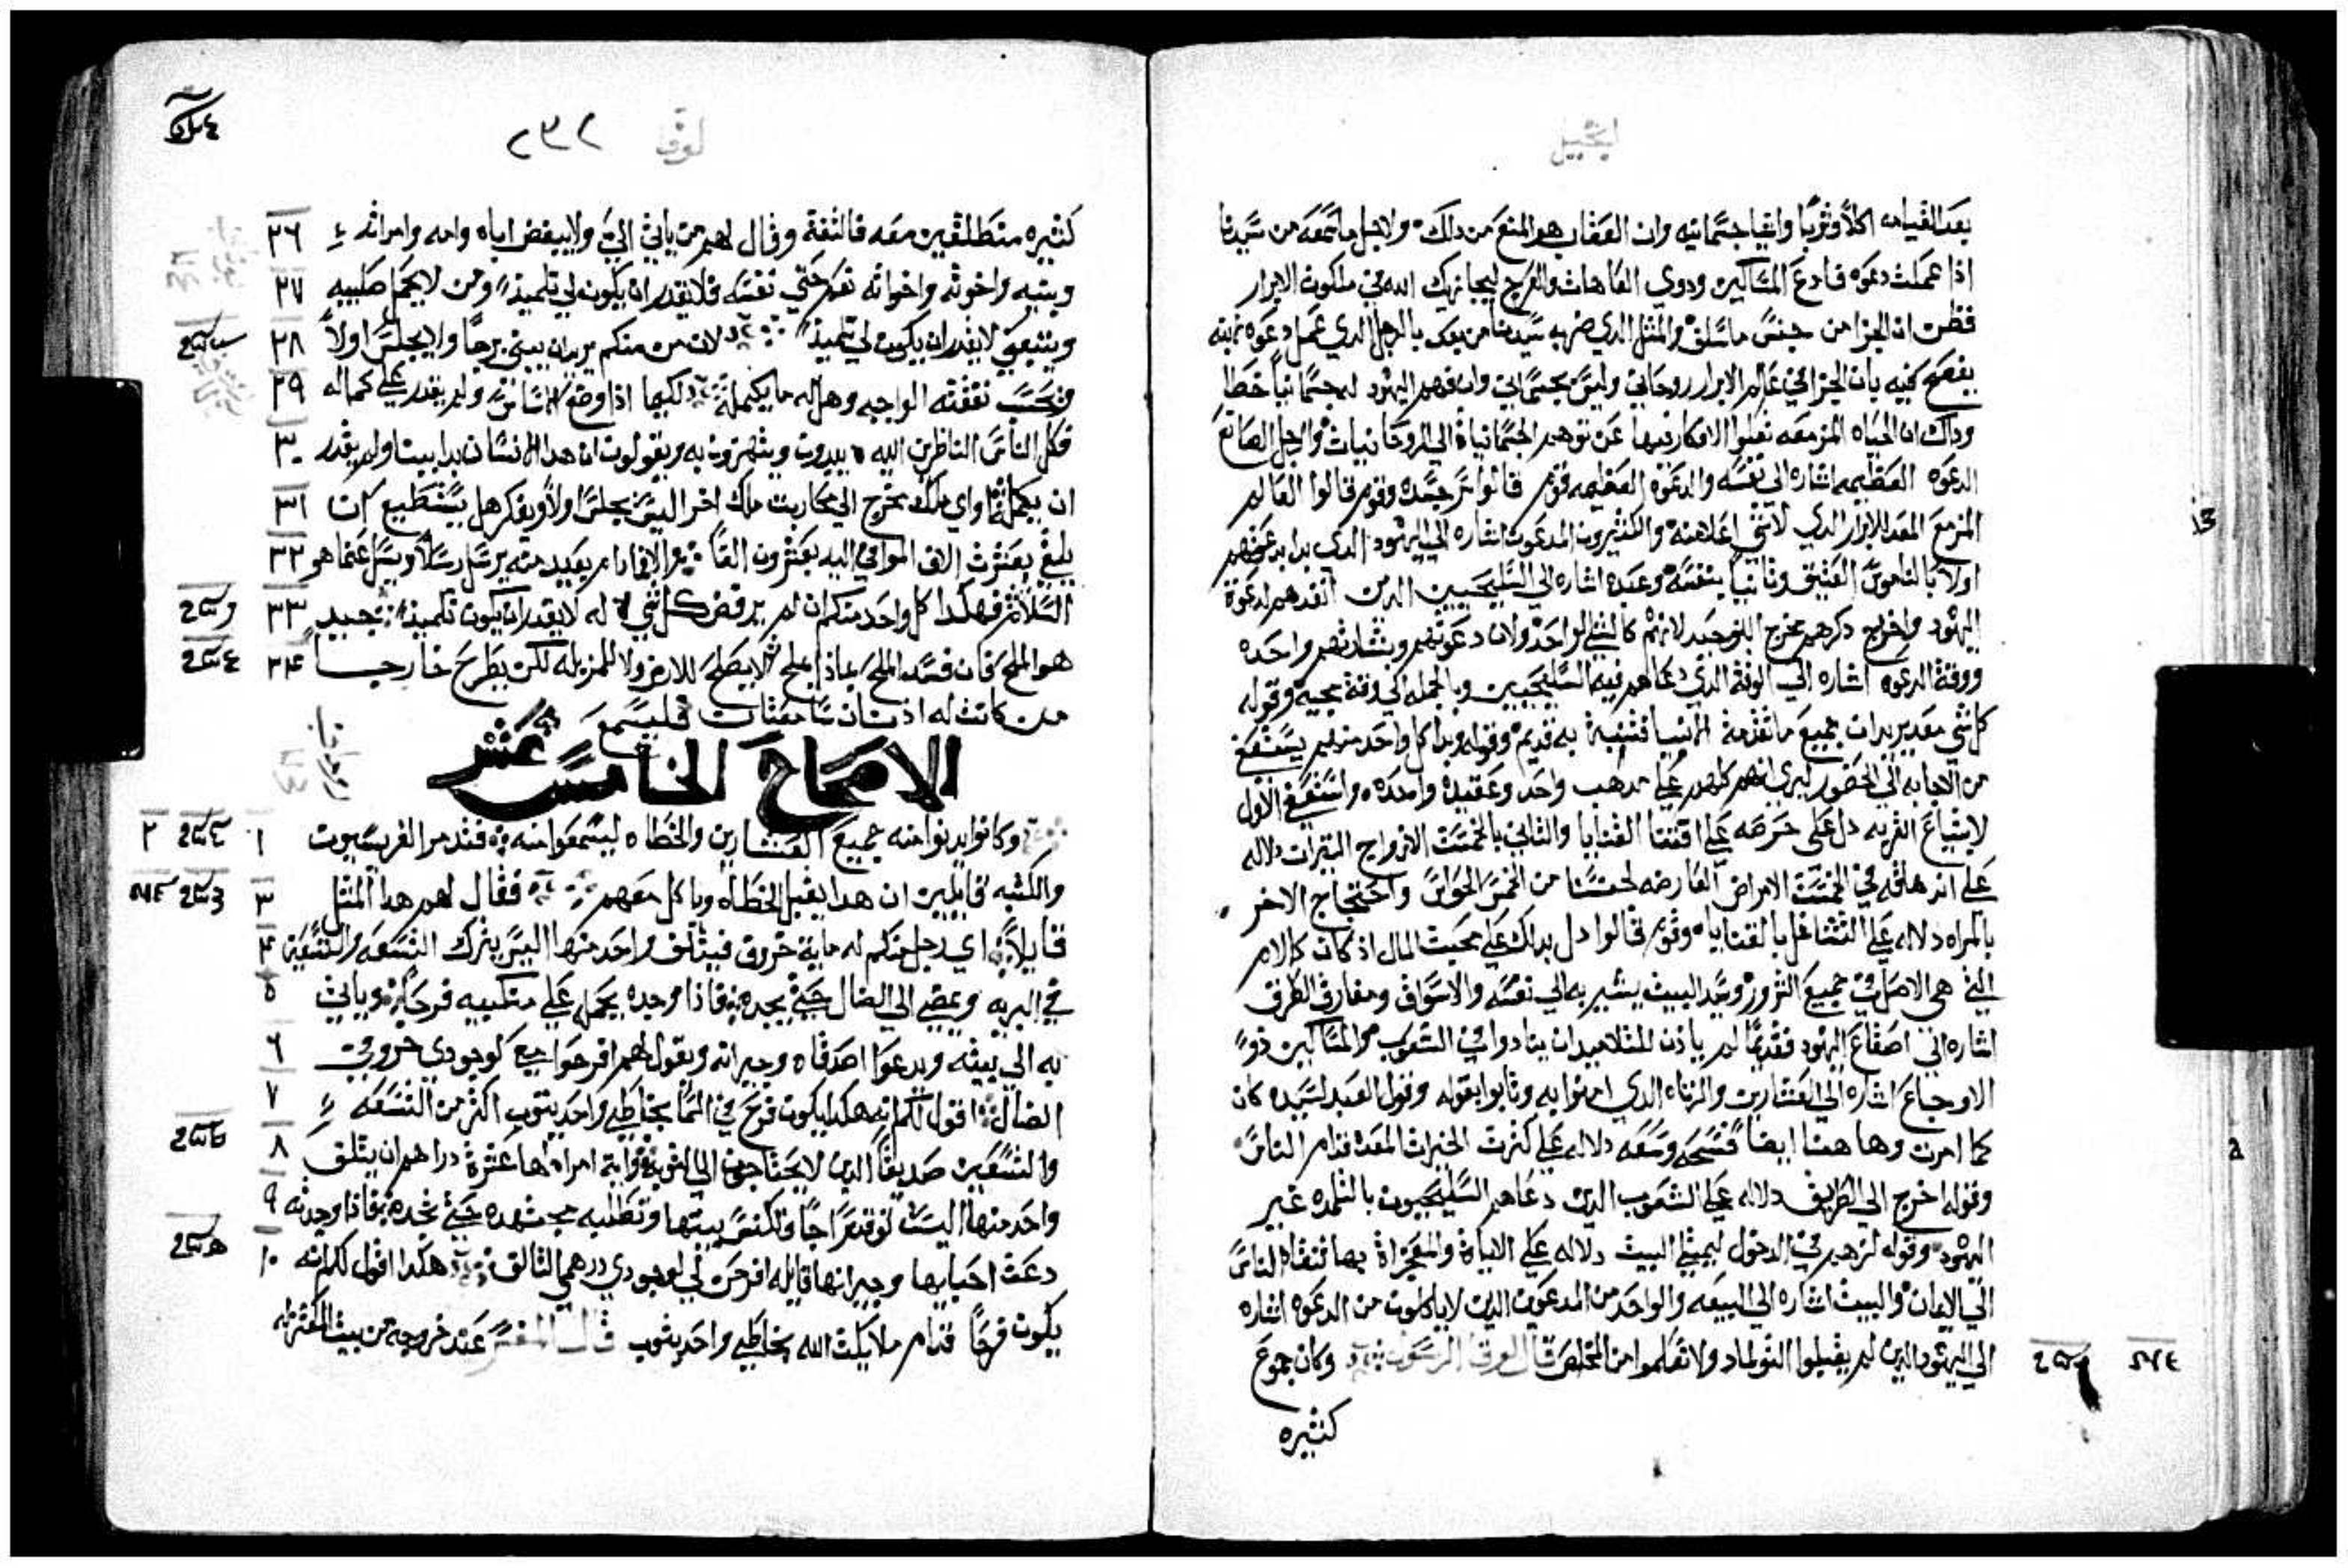 انجيل
بعد القيامه اكلاً وشربًا واشيا جسمانيه وان العقاب هو المنع من دالك ولاجل ما سمعه من سيدنا
اذا عملت دعوه فادع المساكين ودوي العاهات والعرج ليجازيك الله في ملكوت الابرار
فظن ان الجزا من جنس ما سلف والمثل الدي ضربه سيدنا من بعد بالرجل الدي عمل دعوه نبيه
يفصح كنيه بان الجزا في عالم الابرار روحاني وليس بجسماني وان فهم اليهود له جسمانياً خطا
وداك ان الحياه المزمعه تعلوا الافكار فيها عن توهم الجسمانياة الي الروحانيات والرجل الصانع
الدعوه العظيمه اشاره الى نفسه والدعوه العظيمه قوم قالوا سر جسده وقوم قالوا العالم
المزمع المعد للابرار الدي لا شي اعلا منه والكثيرون المدعوون اشاره الي اليهود الدي بدا بدعوتهم
اولا بالناموس العتيق وثانياً بنفسه وعبده اشاره الي السليحيين الدين انفدهم لدعوة
اليهود واخرج دكرهم مخرج التوحيد لانهم كالشي الواحد وان دعوتهم وبشارتهم واحده
ووقة الدعوه اشاره الي الوقة الدي دعاهم فيه السليحيين وبالجمله الي وقة مجيه وقوله
كل شي معد يريد ان جميع ما تقدمة الانبيا فتنبية به قديم وقوله وبدا كل واحد منهم يستعفي
من الاجابه الي الحضور ليري انهم كلهم علي مدهب واحد وعقيدة واحده واستعفي الاول
لابتياع القريه دل على حرصه علي اقتنا القنايا والثاني بالخمسة الازواج البقرات دلاله
علي انهماقه في الخمسة الامراض العارضه لحسنا من الخمس الحواس واحتجاج الاخر
بالمراه دلاله علي التشاغل بالقناياه وقوم قالوا دل بدالك علي محبت المال اد كان كالام
التي هي الاصل في جميع الشرور وسيد البيت يشير به الي نفسه والاسواق ومفارق الطرق
اشاره الي اصقاع اليهود فقديمًا لم يادن للتلاميد ان ينادوا في الشعوب والمساكين دو
الاوجاع اشاره الي العشارين والزناه الدي امنوا به وتابوا بقوله وقول العبد لسيده كان
كما امرت وها هنا ايضاً فسحه وسعه دلاله علي كثرت الخيرات المعده قدام الناس
وقوله اخرج الي الطريق دلاله علي الشعوب الدين دعاهم السليحيون بالتلمده غير
اليهود وقوله لزهم في الدخول ليمتلي البيت دلاله علي الاياة والمعجزاة بها تنقاد الناس
الي الايمان والبيت اشاره الي البيعه والواحد من المدعوين الدين لا ياكلون من الدعوه اشاره
الي اليهود الدين لم يقبلوا التولماد ولا تعلموا من المخلص قال لوقا الرسول وكان جموع
كثيره
لوقا ٢٣٢
كثيره منطلقين معه فالتفة وقال لهم من ياتي الي ولا يبغض اباه وامه وامراته ٢٦
وبنيه واخوته واخواته نعم حتي نفسه فلا يقدر ان يكون لي تلميذ ومن لا يحمل صليبه ٢٧
ويتبعني لا يقدر ان يكون لي تلميذ لان من منكم يريد ان يبني برجاً والا يجلس اولاً ٢٨
ويحسب نفقته الواجبه وهل له ما يكمله لكيما اذا وضع الاساس ولم يقدر علي كماله ٢٩
فكل الناس الناظرين اليه يبدون ويهزون به ويقولون ان هدا الانسان بدا يبنا ولم يقدر ٣٠
ان يكمله او اي ملك يخرج الي محاربت ملك اخر اليس يجلس اولاً ويفكر هل يستطيع ان ٣١
يلقي بعشرت الاف الموافي اليه بعشرون الفاً والا فما دام بعيد منه يرسل رسلاً ويسل عما هو ٣٢
السلام فهكدا كل واحد منكم ان لم يرفض كل شي له لا يقدر ان يكون تلميذ جيد ٣٣
هو الملح فان فسد الملح بماذا يملح لا يصلح للارض ولا للمزبله لكن يطرح خارجاً ٣٤
من كانت له ادنان سامعتان فليسمع
الاصحاح الخامس عشر
وكانوا يدنوا منه جميع العشارين والخطاه ليسمعوا منه فتدمر الفريسيون ١ ٢
والكتبه قايلين ان هدا يقبل الخطاه وياكل معهم فقال لهم هدا المثل ٣
قايلاً اي رجل منكم له ماية خروف فيتلف واحد منها اليس يترك التسعه والتسعين ٤
في البريه ويمضي الي الضال حتي يجده فاذا وجده يحمله علي منكبيه فرحاً وياتي ٥
به الي بيته ويدعوا اصدقاه وجيرانه ويقول لهم افرحوا معي لوجودي خروفي ٦
الضال اقول لكم انه هكدا يكون فرح في السما بخاطي واحد يتوب اكثر من التسعه ٧
والتسعين صديقاً الدين لا يحتاجون الي التوبة وايه امراه لها عشرة دراهم ان يتلف ٨
واحد منها اليست توقد سراجًا وتكنس بيتها وتطلبه مجتهده حتي تجده فاذا وجدته ٩
دعت احبايها وجيرانها قايله افرحن لي لوجودي درهمي التالف هكدا اقول لكم انه ١٠
يكون فرحًا قدام ملايكت الله بخاطي واحد يتوب قال المفسر عند خروجه من بيت